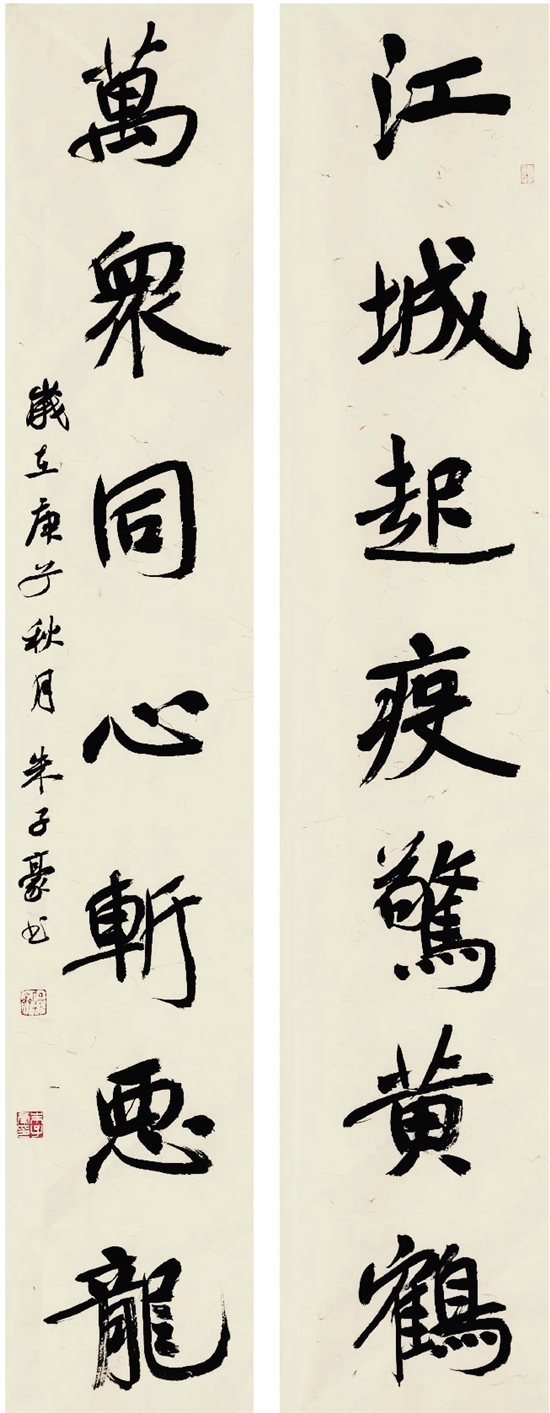 江城起疫驚黄鶴
萬眾同心斬惡龍
歲在庚子秋月朱子豪書